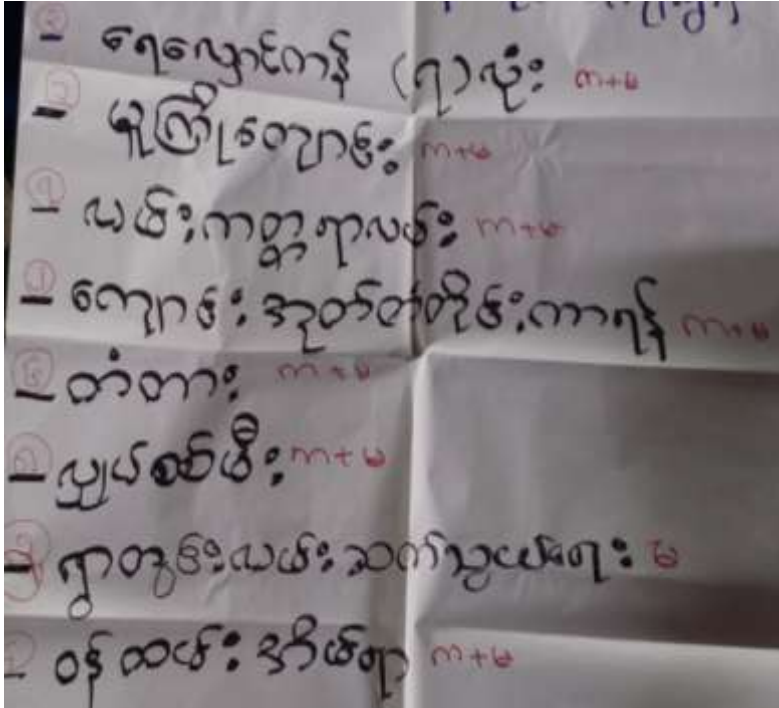 - ရေလှောင်ကန် (၅)လုံး က+မ
- မူကြိုကျောင်း က+မ
- လမ်းကတ္တရာလမ်း က+မ
- ကျောင်းအုတ်တံတိုင်းကာရန် က+မ
- တံတား က+မ
- လျှပ်စစ်မီး က+မ
- ရွာတွင်းလမ်းဆက်သွယ်ရေး မ
- ဝန်ထမ်းအိမ်ရာ က+မ